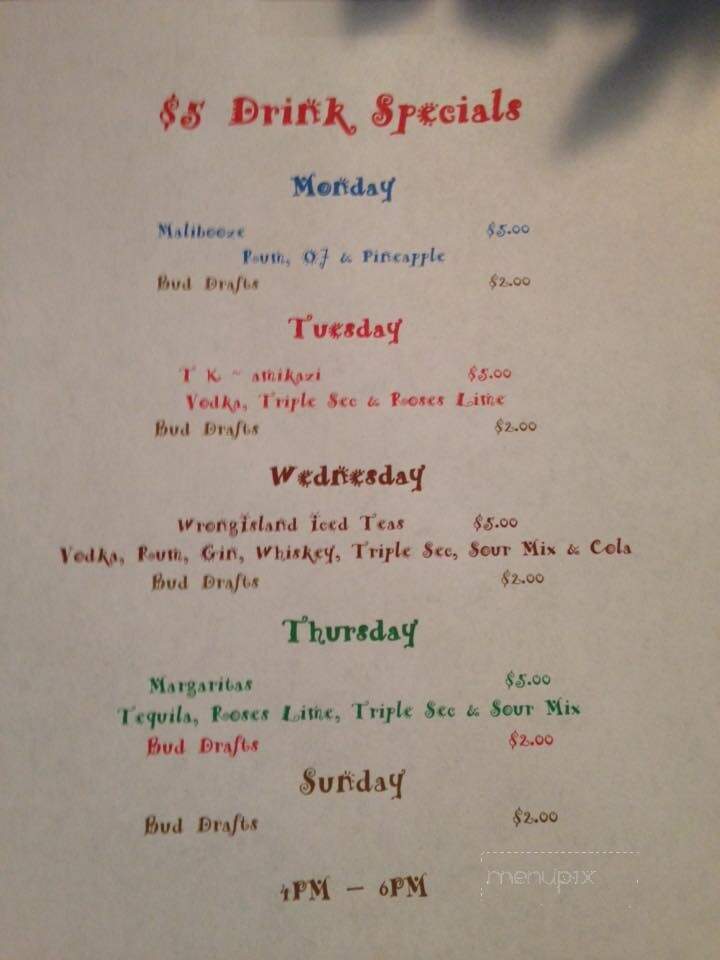 $5 Drink Specials
Monday
Malibooze $5.00
Rum, OJ & Pineapple
Bud Drafts $2.00
Tuesday
T K ~ amikazi $5.00
Vodka, Triple Sec & Roses Lime
Bud Drafts $2.00
Wednesday
Wrongisland iced Teas $5.00
Vodka, Rum, Gin, Whiskey, Triple Sec, Sour Mix & Cola
Bud Drafts $2.00
Thursday
Margaritas $5.00
Tequila, Roses Lime, Triple Sec & Sour Mix
Bud Drafts $2.00
Sunday
Bud Drafts $2.00
4PM – 6PM
menupix